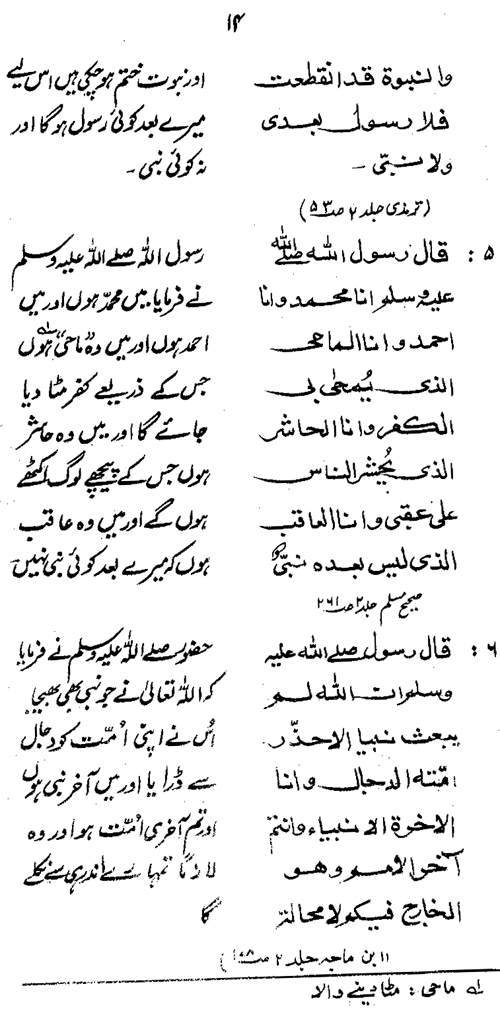 ۱۴
والنبوة قد انقطعت
فلا رسول بعدی
ولا نبتی ـ
اور نبوت ختم ہوچکی ہیں اس لیے
میرے بعد کوئی رسول ہوگا اور
نہ کوئی نبی ۔
(ترمذی جلد ۲ صـ ۵۳)
۵ : قال رسول اللہ صلے اللہ
علیہ وسلم انا محمد وانا
احمد وانا الماحی
الذی یُمحٰی بی
الکفر وانا الحاشر
الذی یُحشر الناس
علیٰ عقبی وانا العاقب
الذی لیس بعدہ نبیٌّ
رسول اللہ صلے اللہ علیہ وسلم
نے فرمایا میں محمدؐ ہوں اور میں
احمد ہوں اور میں وہ ”ماحی“ لہ ہوں
جس کے ذریعے کفر مٹا دیا
جائے گا اور میں وہ حاشر
ہوں جس کے پیچھے لوگ اکٹھے
ہوں گے اور میں وہ عاقب
ہوں کہ میرے بعد کوئی نبی نہیں۔
صحیح مسلم جلد ۲ صـ ۲۶۱
۶ : قال رسول صلے اللہ علیہ
وسلم ان اللہ لم
یبعث نبیا الا حذّر
امّتہ الدجال وانا
الاخرة الانبیاء وانتم
آخر الامم وھو
الخارج فیکم لا محالة
حضور صلے اللہ علیہ وسلم نے فرمایا
کہ اللہ تعالیٰ نے جو نبی بھی بھیجا
اُس نے اپنی اُمّت کو دجال
سے ڈرایا اور میں آخر نبی ہوں
اور تم آخری اُمّت ہو اور وہ
لازمًا تمہارے اندر ہی سے نکلے
گا
(ابن ماجہ جلد ۲ صـ)
لہ ماحی : مٹا دینے والا